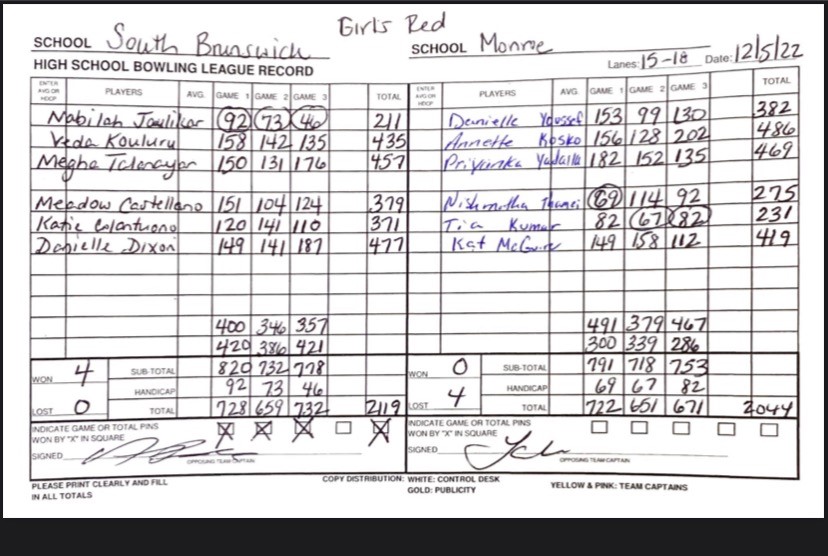 Girls Red
SCHOOL South Brunswick
SCHOOL Monroe
Lanes: 15-18 Date: 12/5/22
HIGH SCHOOL BOWLING LEAGUE RECORD
ENTER AVG OR HDCP PLAYERS AVG. GAME 1 GAME 2 GAME 3 TOTAL ENTER AVG OR HDCP PLAYERS AVG. GAME 1 GAME 2 GAME 3 TOTAL
Nabilah 92 73 46 211 Danielle Youssef 153 99 130 382
Veda Kouluru 158 142 135 435 Annette Kosko 156 128 202 486
Megha 150 131 176 457 Priyanka 182 152 135 469
Meadow Castellano 151 104 124 379 69 114 92 275
Katie Colantuono 120 141 110 371 Tia Kumar 82 67 82 231
Danielle Dixon 149 141 187 477 Kat McGuire 149 158 112 419
400 346 357 491 379 467
420 386 421 300 339 286
WON 4 SUB-TOTAL 820 732 778 WON 0 SUB-TOTAL 791 718 753
HANDICAP 92 73 46 HANDICAP 69 67 82
LOST 0 TOTAL 728 659 732 2119 LOST 4 TOTAL 722 651 671 2044
INDICATE GAME OR TOTAL PINS WON BY "X" IN SQUARE X X X X INDICATE GAME OR TOTAL PINS WON BY "X" IN SQUARE
SIGNED OPPOSING TEAM CAPTAIN SIGNED OPPOSING TEAM CAPTAIN
PLEASE PRINT CLEARLY AND FILL IN ALL TOTALS
COPY DISTRIBUTION: WHITE: CONTROL DESK
GOLD: PUBLICITY
YELLOW & PINK: TEAM CAPTAINS